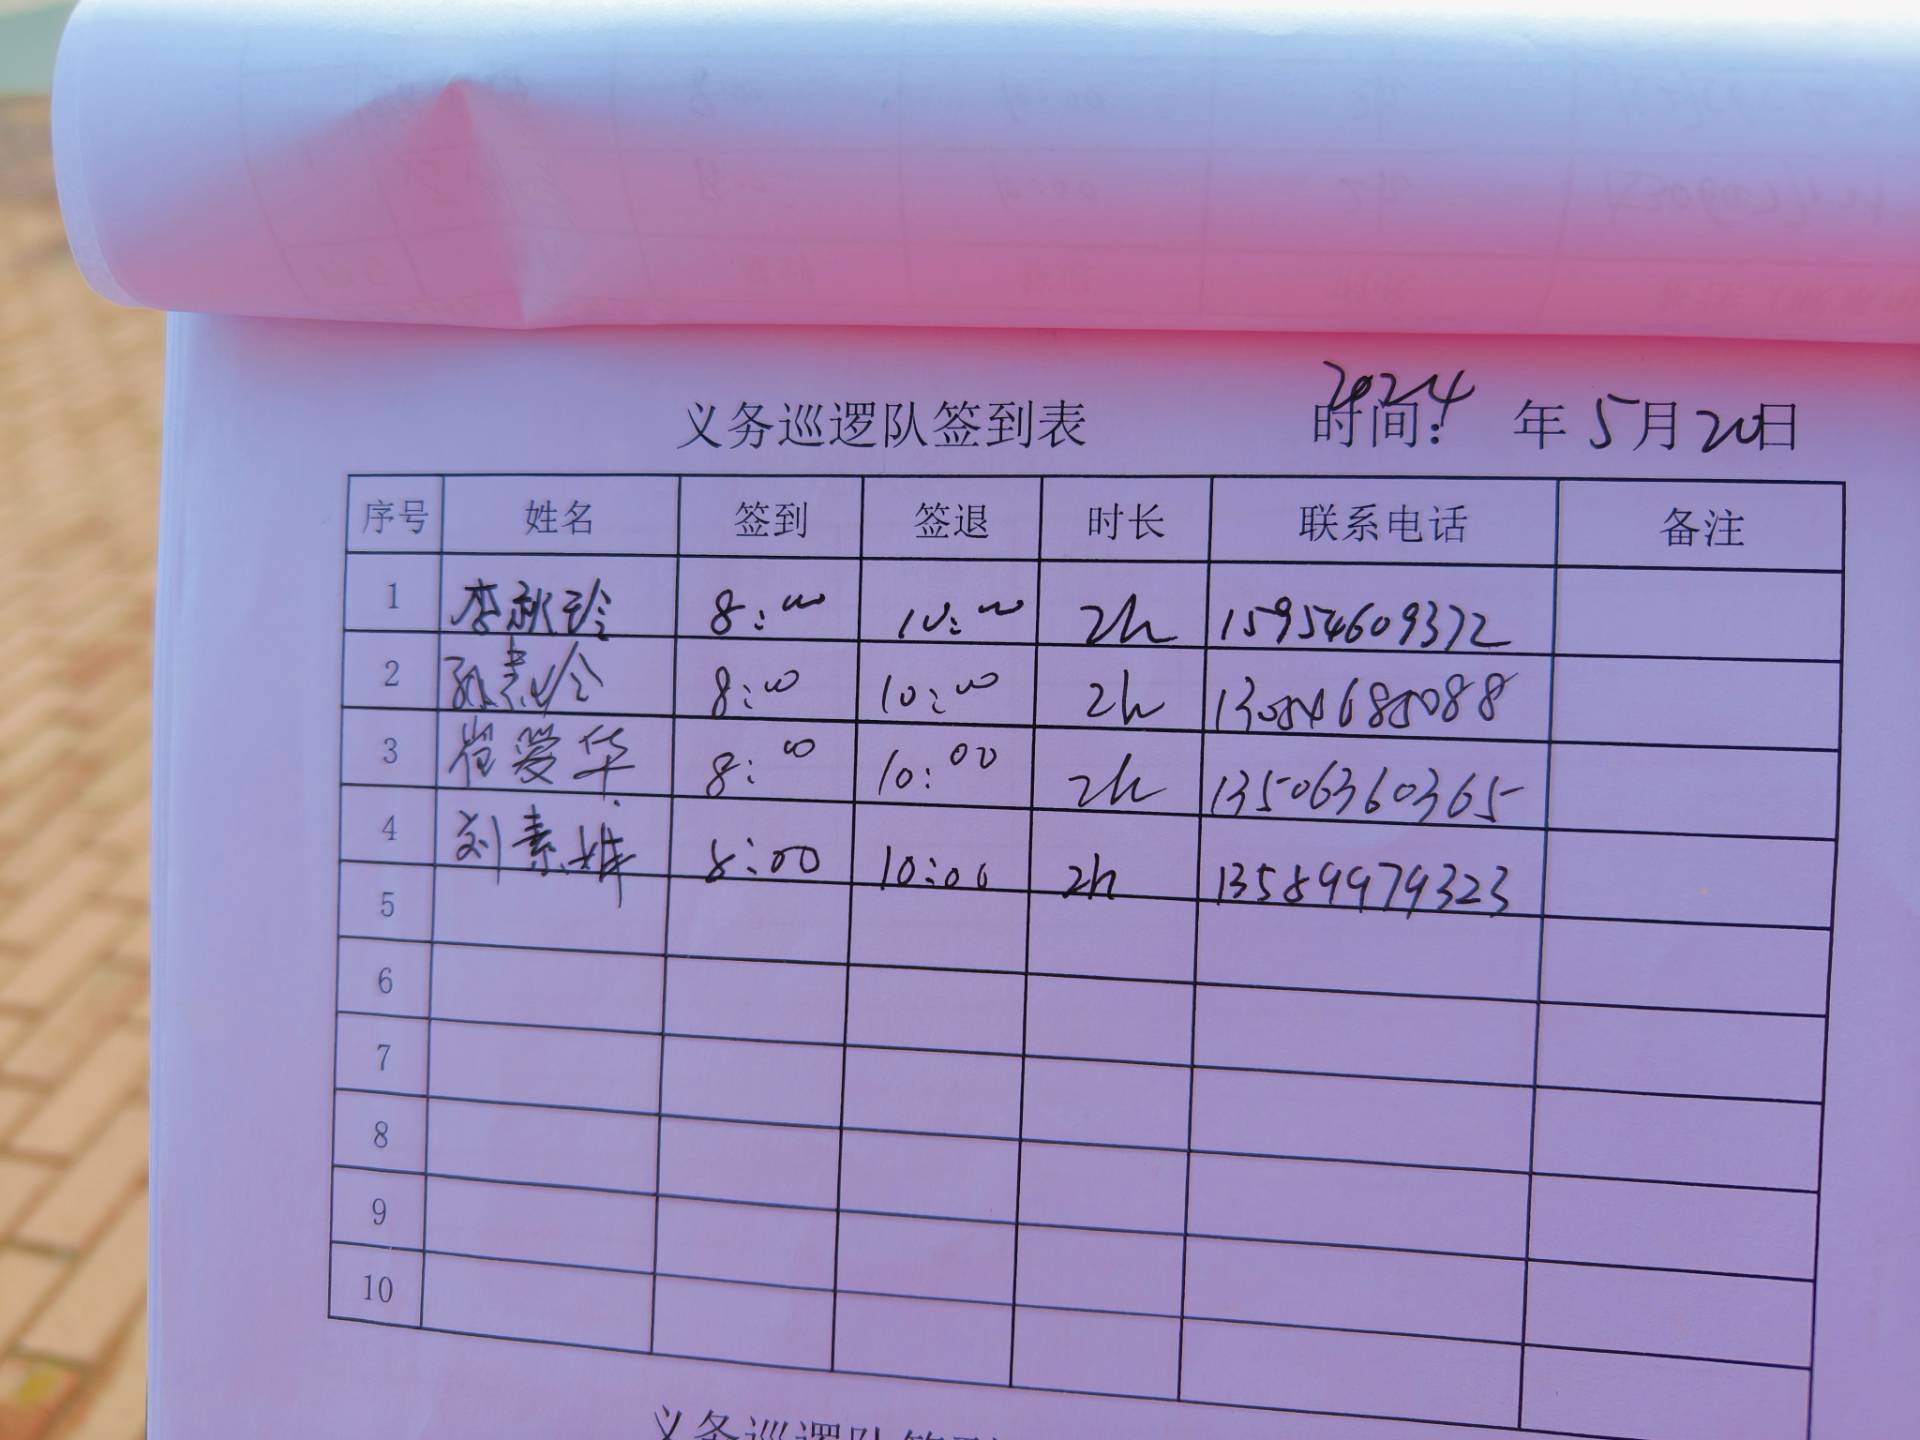 义务巡逻队签到表 时间: 2024 年 5 月 20 日
序号 姓名 签到 签退 时长 联系电话 备注
1 李秋玲 8:00 10:00 2h 15954609372
2 8:00 10:00 2h
3 崔爱华 8:00 10:00 2h 13506360365
4 刘素娥 8:00 10:00 2h 13589979323
5
6
7
8
9
10
义务巡逻队签到